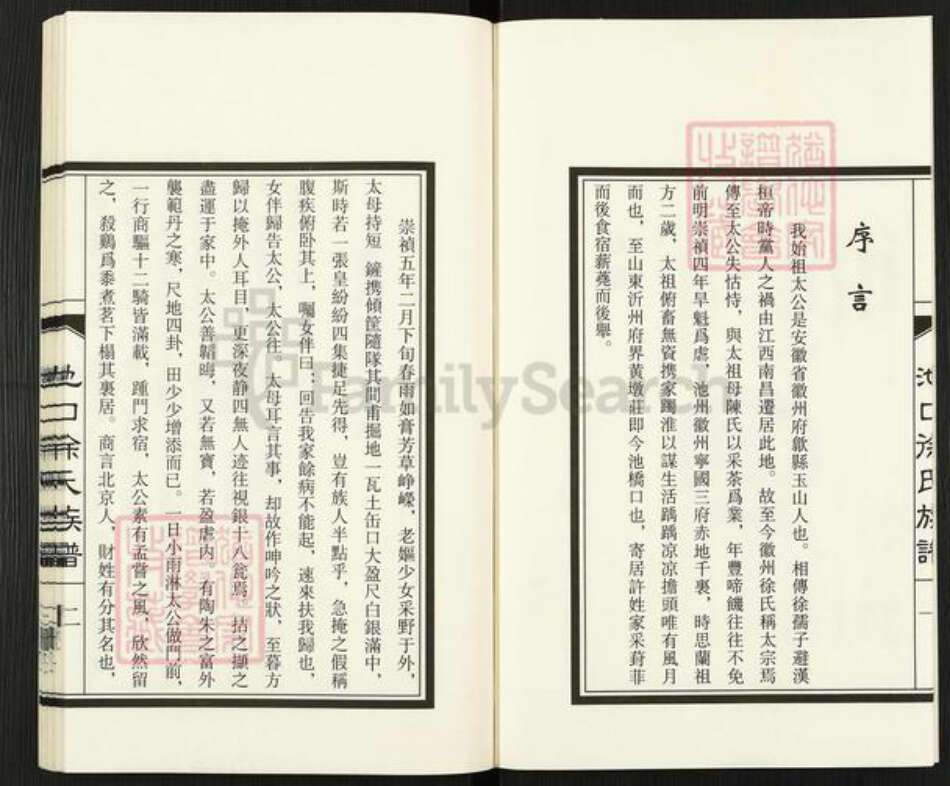 序言
我始祖太公是安徽省徽州府歙縣玉山人也。相傳徐孺子避漢
桓帝時黨人之禍由江西南昌遷居此地。故至今徽州徐氏稱太宗焉
傳至太公失怙恃，與太祖母陳氏以采茶爲業，年豐啼饑往往不免
前明崇禎四年旱魃爲虐，池州徽州寧國三府赤地千裏，時思蘭祖
方二歲，太祖俯畜無資携家躅淮以謀生活踽踽凉凉擔頭唯有風月
而也，至山東沂州府界黄墩莊即今池橋口也，寄居許姓家采葑菲
而後食宿薪蕘而後舉。
崇禎五年二月下旬春雨如膏芳草崢嶸，老嫗少女采野于外，
太母持短 鑱携傾筐隨隊其間甫掘地一瓦土缶口大盈尺白銀滿中，
斯時若一張皇紛紛四集捷足先得，豈有族人半點乎，急掩之假稱
腹疾俯卧其上，囑女伴曰：回告我家餘病不能起，速來扶我歸也，
女伴歸告太公，太公往。太母耳言其事，却故作呻吟之狀，至暮方
歸以掩外人耳目，更深夜静四無人迹往視銀十八瓮焉 拮之擷之
盡運于家中。太公善韜晦，又若無寶，若盈虐内，有陶朱之富外
襲範丹之寒，尺地四卦，田少少增添而已。一日小雨淋太公做門前，
一行商驅十二騎皆滿載，踵門求宿，太公素有孟嘗之風，欣然留
之，殺鷄爲黍煮茗下榻其裏居。商言北京人，財姓有分其名也，
池口徐氏族譜
十一
池口徐氏族譜
FamilySearch